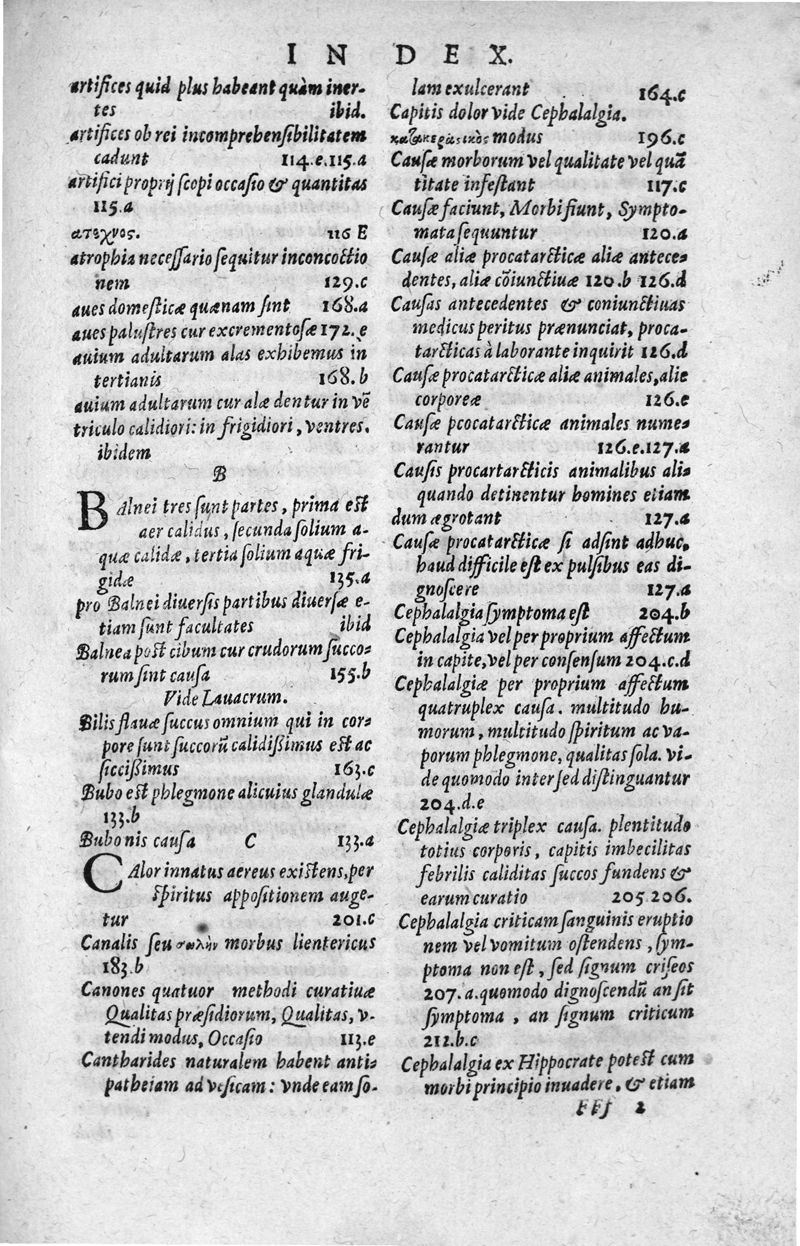 INDEX.
artifices quid plus habeant quàm iner-
tes ibid.
artifices ob rei incomprehensibilitatem
cadunt 114.e.115.a
artifici proprij scopi occasio & quantitas
115.a
ατεχνος. 116 E
atrophia necessario sequitur inconcoctio
nem 129.c
aues domesticæ quænam sint 168.a
aues palustres cur excrementosæ 172.e
auium adultarum alas exhibemus in
tertianis 168.b
auium adultarum cur alæ dentur in vē
triculo calidiori: in frigidiori, ventres.
ibidem
B
Balnei tres sunt partes, prima est
aer calidus, secunda solium a-
quæ calidæ, tertia solium aquæ fri-
gidæ 135.a
pro Balnei diuersis partibus diuersæ e-
tiam sunt facultates ibid
Balnea post cibum cur crudorum succo-
rum sint causa 155.b
Vide Lauacrum.
Bilis flauæ succus omnium qui in cor-
pore sunt succorū calidißimus est ac
siccißimus 163.c
Bubo est phlegmone alicuius glandulæ
133.b
Bubonis causa C 133.a
Calor innatus aereus existens, per
spiritus appositionem auge-
tur 201.c
Canalis seu morbus lientericus
183.b
Canones quatuor methodi curatiuæ
Qualitas præsidiorum, Qualitas, v-
tendi modus, Occasio 113.e
Cantharides naturalem habent anti-
patheiam ad vesicam: vnde eam so-
lam exulcerant 164.c
Capitis dolor vide Cephalalgia.
modus 196.c
Causæ morborum vel qualitate vel quā
titate infestant 117.c
Causæ faciunt, Morbi fiunt, Sympto-
mata sequuntur 120.a
Causæ aliæ procatarcticæ aliæ antece-
dentes, aliæ cōiunctiuæ 120.b 126.d
Causas antecedentes & coniunctiuas
medicus peritus prænunciat, proca-
tarcticas à laborante inquirit 126.d
Causæ procatarcticæ aliæ animales, aliæ
corporeæ 126.e
Causæ pcocatarcticæ animales nume-
rantur 126.e.127.a
Causis procartarcticis animalibus ali-
quando detinentur homines etiam
dum ægrotant 127.a
Causæ procatarcticæ si adsint adhuc,
haud difficile est ex pulsibus eas di-
gnoscere 127.a
Cephalalgia symptoma est 204.b
Cephalalgia vel per proprium affectum
in capite, vel per consensum 204.c.d
Cephalalgiæ per proprium affectum
quatruplex causa. multitudo hu-
morum, multitudo spirituum ac va-
porum phlegmone, qualitas sola. vi-
de quomodo inter sed distinguantur
204.d.e
Cephalalgiæ triplex causa. plentitudo
totius corporis, capitis imbecilitas
febrilis caliditas succos fundens &
earum curatio 205.206.
Cephalalgia criticam sanguinis eruptio
nem vel vomitum ostendens, sym-
ptoma non est, sed signum criseos
207.a. quomodo dignoscendū an sit
symptoma, an signum criticum
212.b.c
Cephalalgia ex Hippocrate potest cum
morbi principio inuadere, & etiam
FFf 2